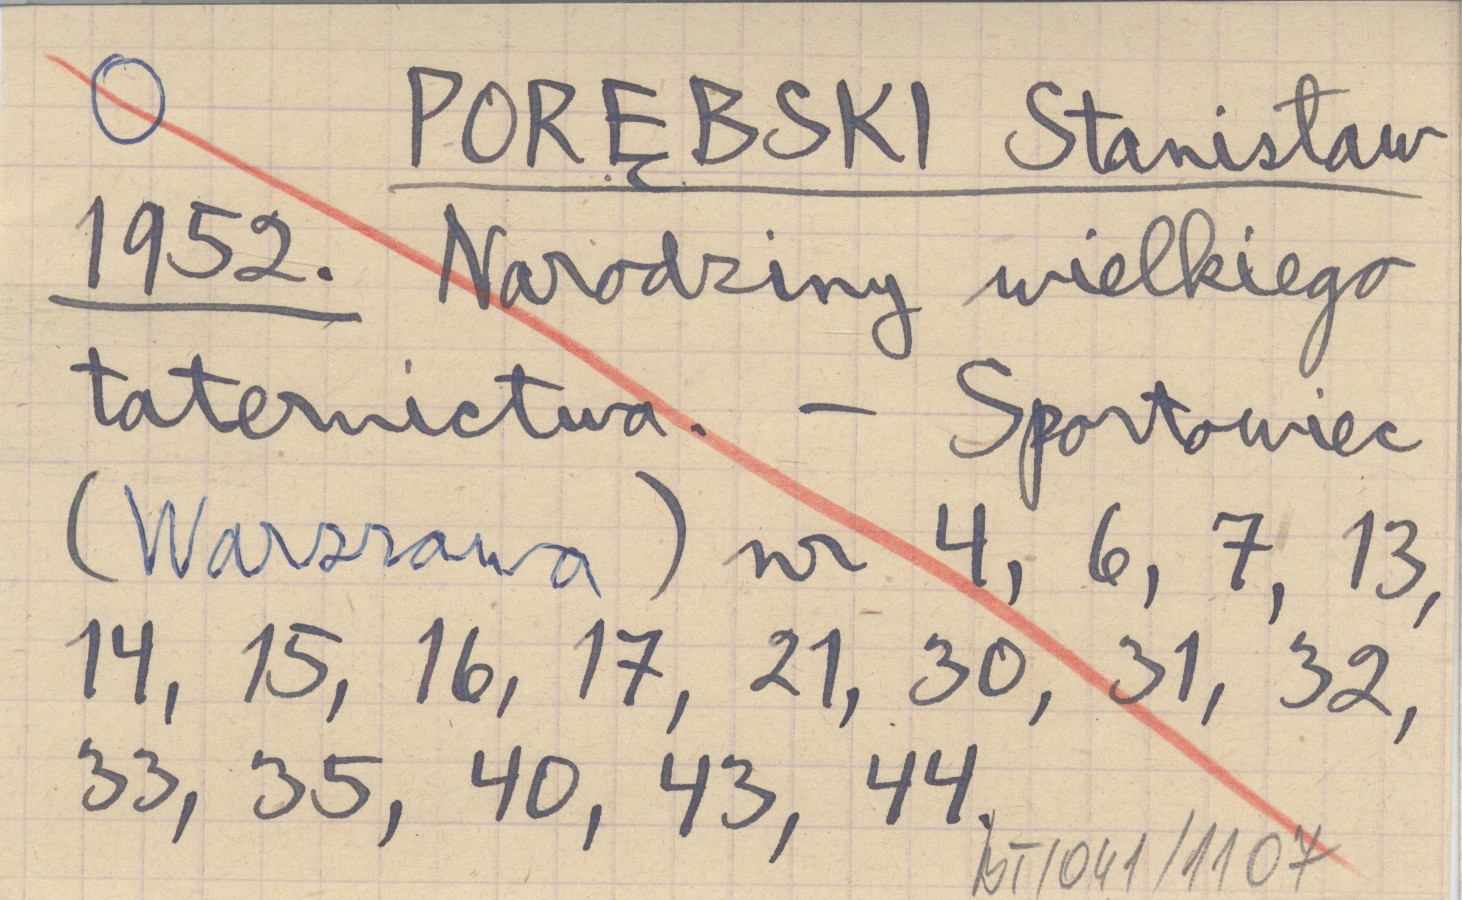 O PORĘBSKI Stanisław
1952. Narodziny wielkiego
taternictwa. – Sportowiec
(Warszawa) nr 4, 6, 7, 13,
14, 15, 16, 17, 21, 30, 31, 32,
33, 35, 40, 43, 44.
BT/041/1107